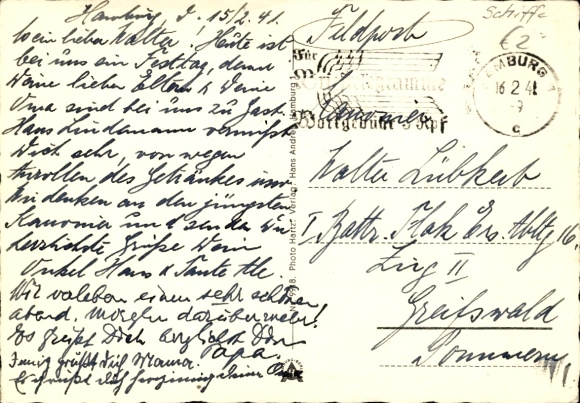 Hamburg, d. 15/2. 41.
Mein lieber Walter! Heute ist
bei uns ein Festtag, denn
Deine lieben Eltern & Deine
Oma sind bei uns zu Gast
Hans Lindemann vermisst
Dich sehr, von wegen
des Getränkes
an den jüngsten
Kanonier und sendet
Grüße Dein
Onkel Hans & Tante
Wir verleben einen sehr schönen
Abend. Morgen darüber mehr!
Es grüßt Dich Dein
Papa.
Innig grüßt dich Mama.
Es grüßt dich Oma
Nr. 998. Photo Hartz Verlag: Hans Andres, Hamburg 1
Feldpost
Schiffe
€2
Für
Wortgebühr 3 Rpf
HAMBURG 1
16.2.41
c
Kanonier
Walter Lübkert
I. Battr. Flak Ers. Abtlg 16,
Zug II
Greifswald
Pommern